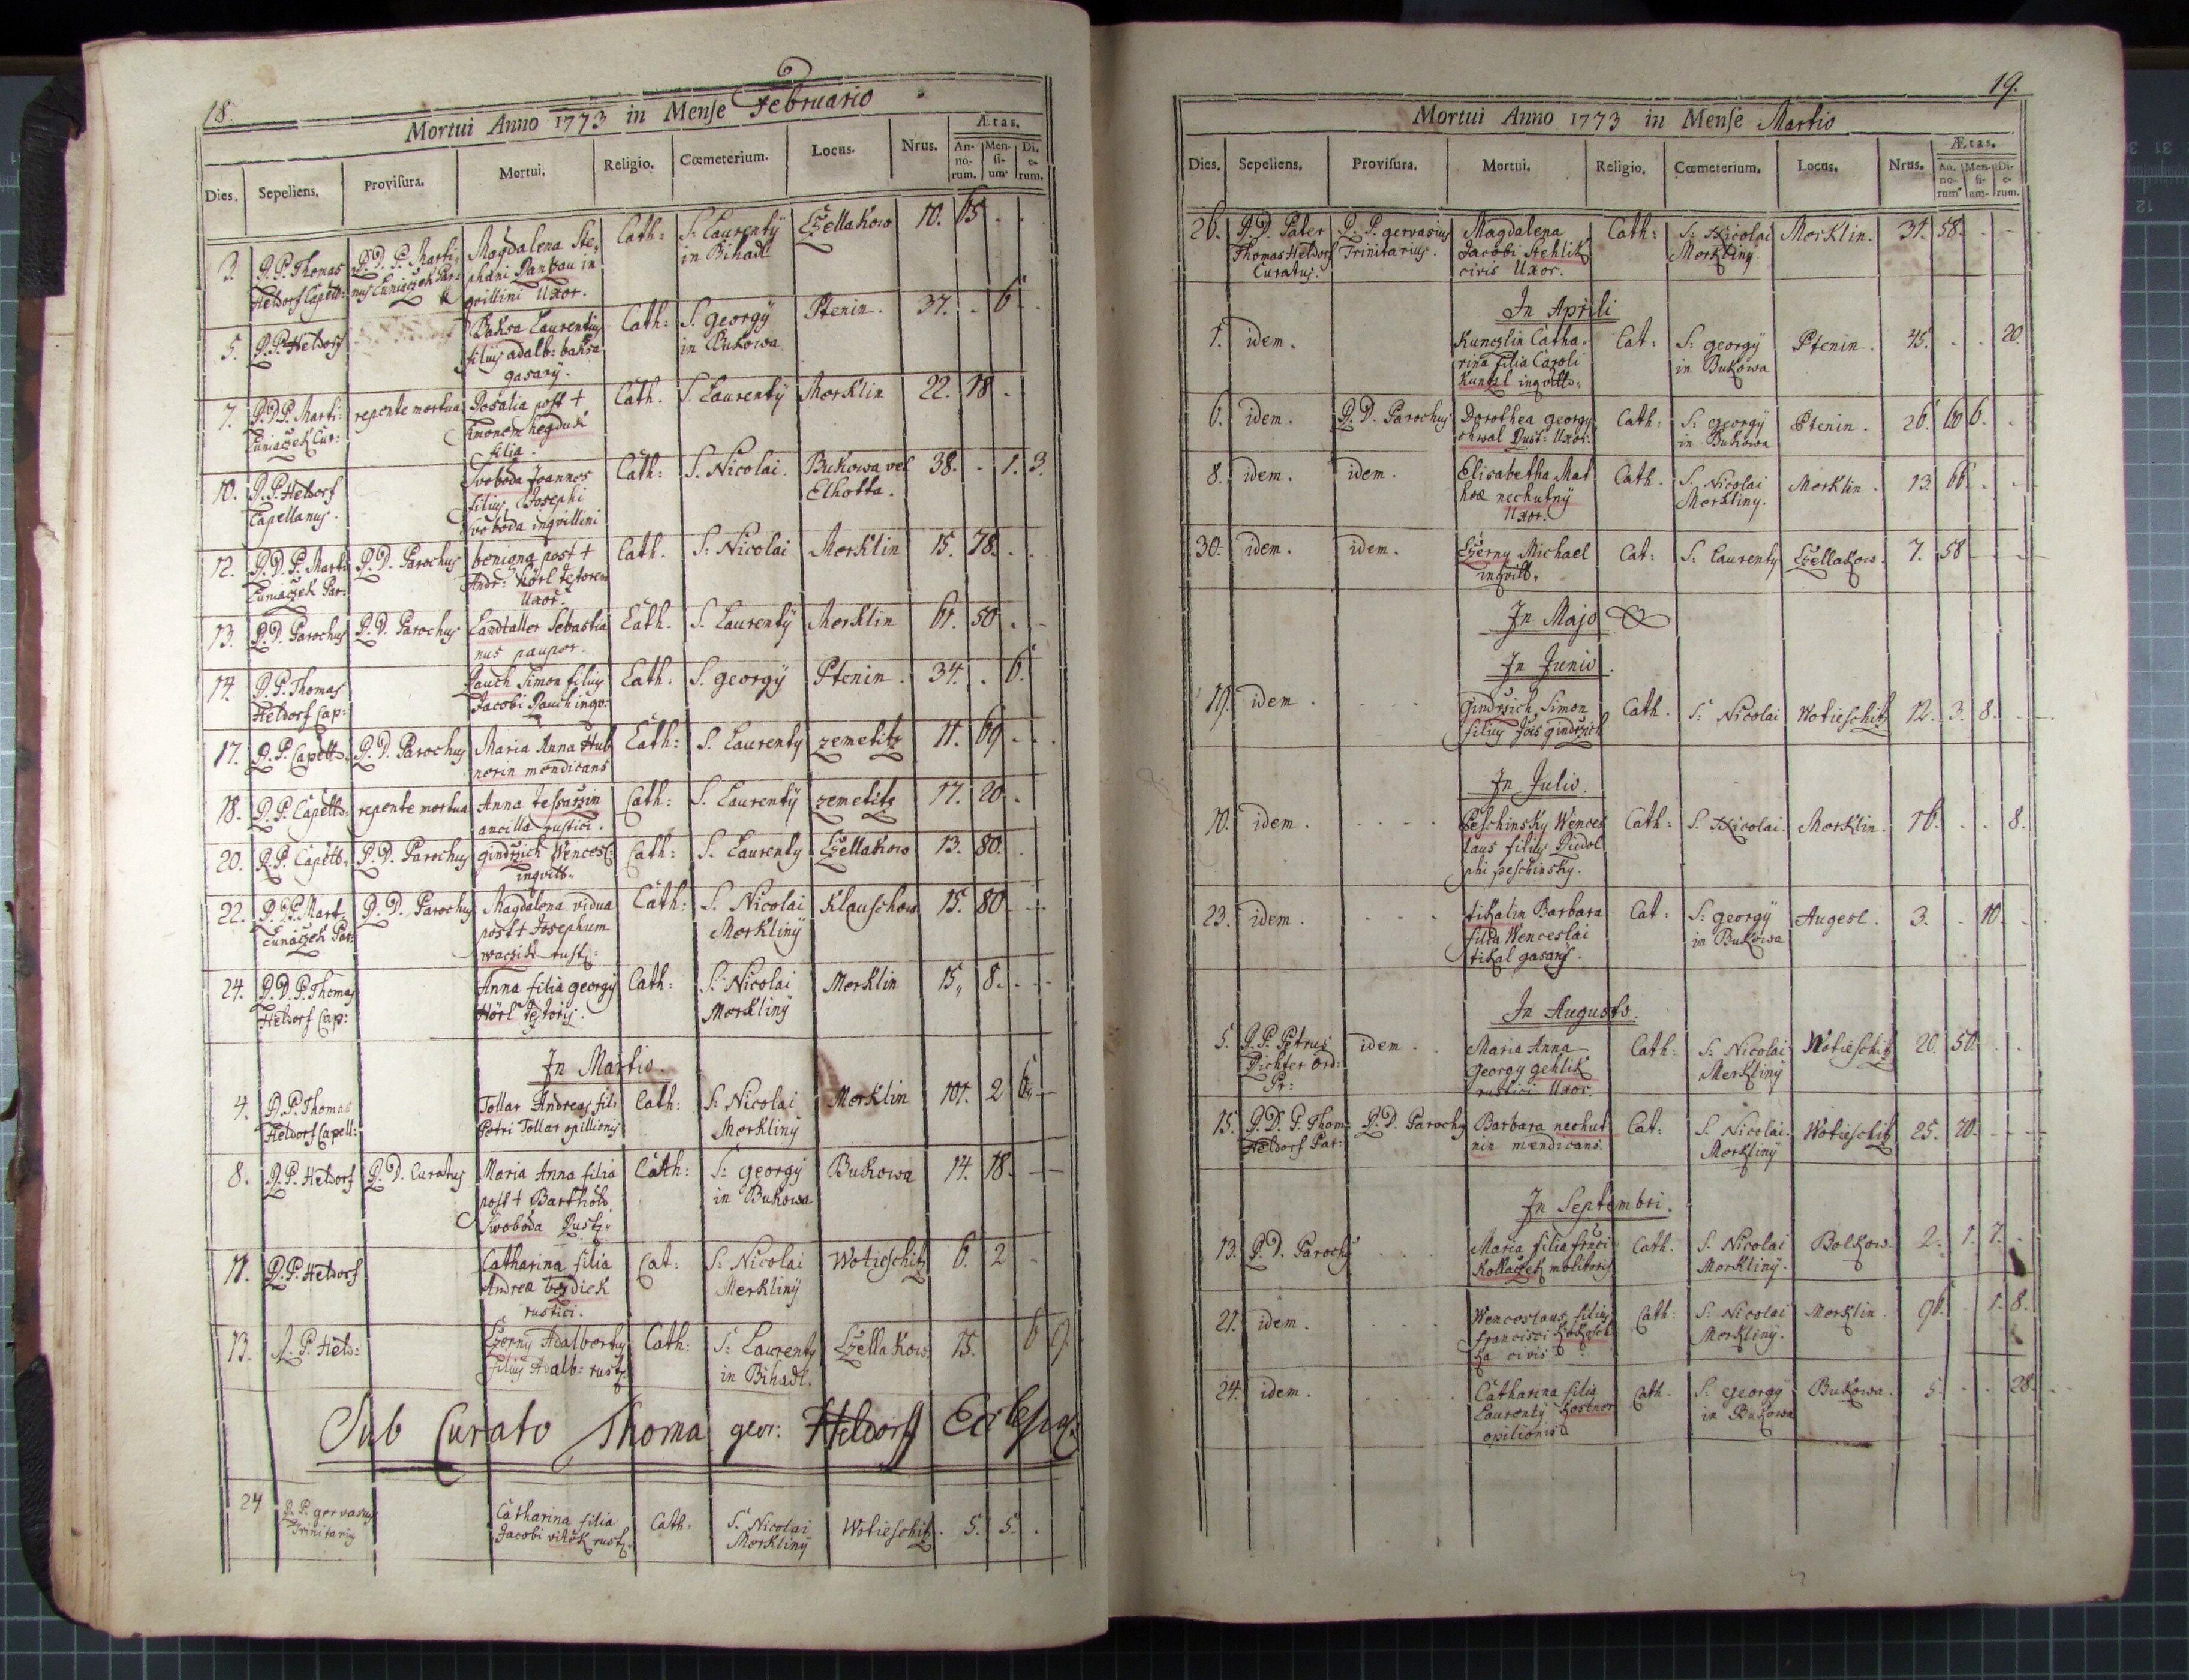 18.
Mortui Anno 1773 in Mense Februario
Dies. Sepeliens. Provisura. Mortui. Religio. Cœmeterium. Locus. Nrus. Ætas.
An-no-rum. Men-si-um. Di-e-rum.
3. P.P. Thomas Heldorf Capell: P.D.P. Marti- nus Cuniaczek Par: Magdalena Ste- phani in qvillini Uxor. Cath: S. Laurentÿ in Bihadl Czellakow 10. 65
5. P.P. Heldorf Baksa Laurentius filius adalb: baksa gasarÿ. Cath: S. georgÿ in Bukowa Ptenin. 37. . 6
7. P.D.P. Marti: Cuniaczek Cur: repente mortua Rosalia post + Simonem hegduk filia. Cath. S. Laurentÿ Merklin 22. 18
10. P.P. Heldorf Capellanus. Svoboda Joannes filius Josephi Svoboda inqvillini Cath: S. Nicolai. Bukowa vel Elhotta. 38. . 1. 3.
12. P.D.P. Marti Cuniaczek Par: P.D. Parochus benigna post + Andr: Hörl textorem Uxor. Cath. S: Nicolai Merklin 15. 78.
13. P.D. Parochus P.D. Parochus Landtaller Sebastia nus pauper. Cath. S. Laurentÿ Merklin 61. 50
14. P.P. Thomas Heldorf Cap: Pauch Simon filius Jacobi Pauch inqv: Cath: S. georgÿ Ptenin. 34. . 6.
17. P.P. Capell. P.D. Parochus Maria Anna Hub nerin mendicans Cath: S. Laurenty zemetitz 11. 69
18. P.P. Capell: repente mortua Anna ancilla rustici. Cath: S. Laurentÿ zemetitz 17. 20
20. P.P. Capell. P.D. Parochus gindrzich Wencesl: inqvill. Cath: S. Laurenty Czellakow 13. 80.
22. P.P. Mart. Cunaczek Par: P.D. Parochus Magdalena vidua post + Josephum rust: Cath: S. Nicolai Merklinÿ Klauschow 15. 80
24. P.D.P. Thomas Heldorf Cap: Anna filia georgÿ Hörl textoris. Cath: S. Nicolai Merklinÿ Merklin 15. 8.
In Martio.
4. P.P. Thomas Heldorf Capell: Tollar Andreas fil: Petri Tollar opillionis Cath: S: Nicolai Merklinÿ Merklin 101. 2 6
8. P.P. Heldorf P.D. Curatus Maria Anna filia post + Barthol: Swoboda Rust. Cath: S: georgÿ in Bukowa Bukowa 14. 18.
11. P.P. Heldorf Catharina filia Andreæ rustici. Cat: S: Nicolai Merklinÿ Wotieschitz 6. 2
13. P.P. Held: Czerny Adalbertus filius Adalb: rust. Cath: S: Laurenty in Bihadl. Czellakow. 15. 6 9.
Sub Curato Thoma geor: Heldorff
24 P.P. gervasius Trinitarius Catharina filia Jacobi vitek rust. Cath: S. Nicolai Merklinÿ Wotieschitz. 5. 5.
19.
Mortui Anno 1773 in Mense Martio
Dies. Sepeliens. Provisura. Mortui. Religio. Cœmeterium. Locus. Nrus. Ætas.
An-no-rum Men-si-um. Di-e-rum.
26. P.D. Pater Thomas Heldorf Curatus. P.P. gervasius Trinitarius. Magdalena Jacobi Stehlik civis Uxor. Cath: S: Nicolai Merklinÿ Merklin. 31. 58.
In Aprili
1. idem. Kunczlin Catha- rina filia Caroli Kuntzl inqvill. Cat: S: georgÿ in Bukowa Ptenin. 45. . . 20.
6. idem. P.D. Parochus Dorothea georgÿ chwal Rust: Uxor. Cath: S: georgÿ in Bukowa Ptenin. 26. 60 6.
8. idem. idem. Elisabetha Mat hæ nechutnÿ Uxor. Cath. S. Nicolai Merkliny. Merklin. 13. 66
30. idem. idem. Czerny Michael inqvill. Cat: S. Laurenty Czellakow. 7. 58
In Majo
In Junio.
19. idem. gindrzich Simon filius Jois gindrzich Cath. S: Nicolai Wotieschitz 12. 3. 8.
In Julio.
10. idem. Peschinsky Wences laus filius Rudol phi peschinsky. Cath: S. Nicolai. Merklin. 16. . . 8.
23. idem. tikalin Barbara filia Wenceslai tikal gasarÿ. Cat: S: georgÿ in Bukowa Augezl. 3. . 10.
In Augusto.
5. P.P. Petrus Richter Ord: Pr: idem. Maria Anna Georgy gehlik rustici Uxor. Cath: S: Nicolai Merklinÿ Wotieschitz 20. 50.
15. P.D.P. Thom. Heldorf Par: P.D. Parochus Barbara nechut nin mendicans. Cat: S. Nicolai. Merklinÿ Wotieschitz 25. 70.
In Septembri.
13. P.D. Parochus Maria filia franci: Kollaczek molitoris Cath. S. Nicolai Merklinÿ. Bolkow. 2. 1. 7.
21. idem. Wenceslaus filius francisci Kokosch ka civis Cath: S: Nicolai Merkliny. Merklin. 96. . 1. 8.
24. idem. Catharina filia Laurentÿ Kostner opilionis Cath. S: georgÿ in Bukowa Bukowa. 5. . . 28.